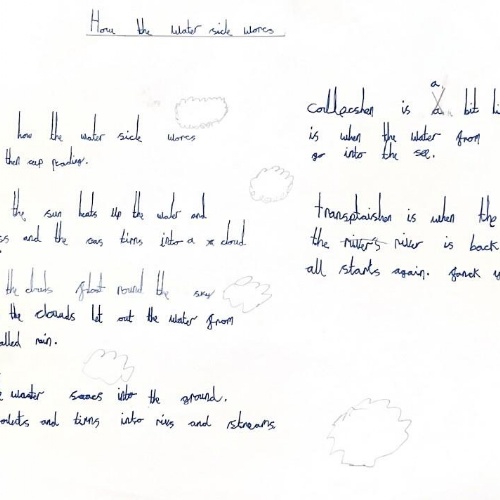 How the water side worcs
how the water side worcs
then eap reading.
the sun heats up the water and
and the gas turns into a cloud.
the clouds float round the sky
the clouds let out the water from
alled rain.
water soacs into the ground.
olects and tirns into rivs and streams
collecshen is a bit li
is when the water from
go into the see.
transpraishen is when the
the river's river is back
all starts again.